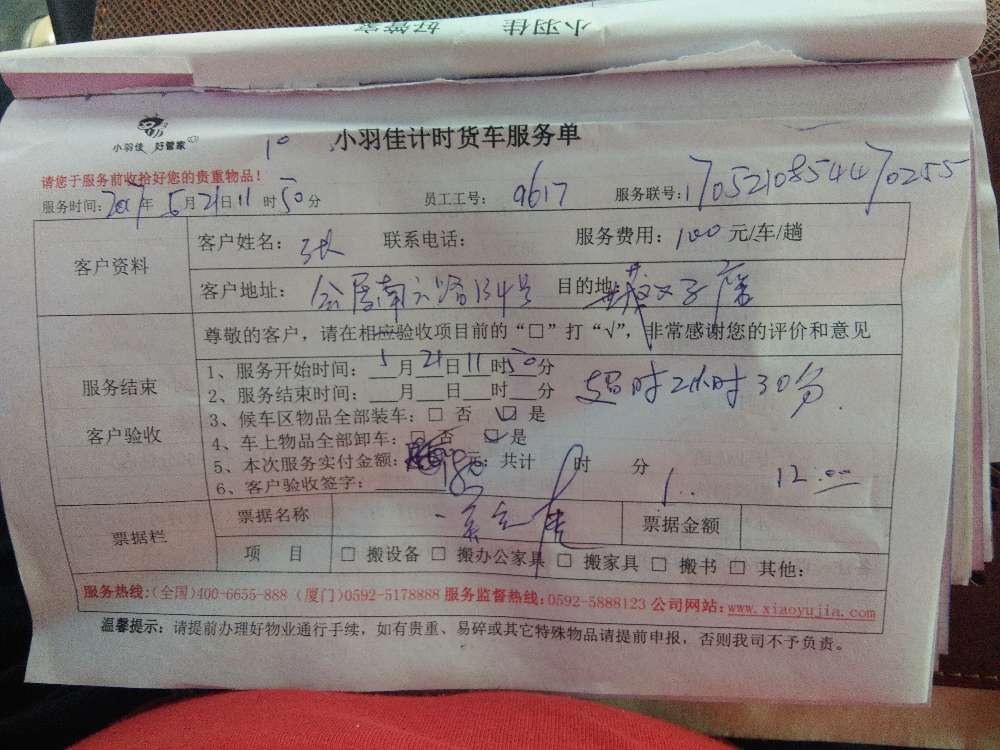 小羽佳 好管家
小羽佳 好管家
小羽佳计时货车服务单
10
请您于服务前收拾好您的贵重物品！
服务时间：2017年5月21日11时50分 员工工号：9617 服务联号：170521085440255
客户资料
客户姓名：张 联系电话： 服务费用：100元/车/趟
客户地址： 南六路134号 目的地：
尊敬的客户，请在相应验收项目前的“□”打“√”，非常感谢您的评价和意见
服务结束
客户验收
1、服务开始时间：5月21日11时50分
2、服务结束时间：___月___日___时___分
超时2小时30分
3、候车区物品全部装车：□ 否 ☑ 是
4、车上物品全部卸车：□ 否 ☑ 是
5、本次服务实付金额： 元；共计 时 分
12:00
6、客户验收签字：
票据栏
票据名称 票据金额
项 目 □ 搬设备 □ 搬办公家具 □ 搬家具 □ 搬书 □ 其他：
服务热线：(全国)400-6655-888 (厦门)0592-5178888 服务监督热线：0592-5888123 公司网站：www.xiaoyujia.com
温馨提示：请提前办理好物业通行手续，如有贵重、易碎或其它特殊物品请提前申报，否则我司不予负责。